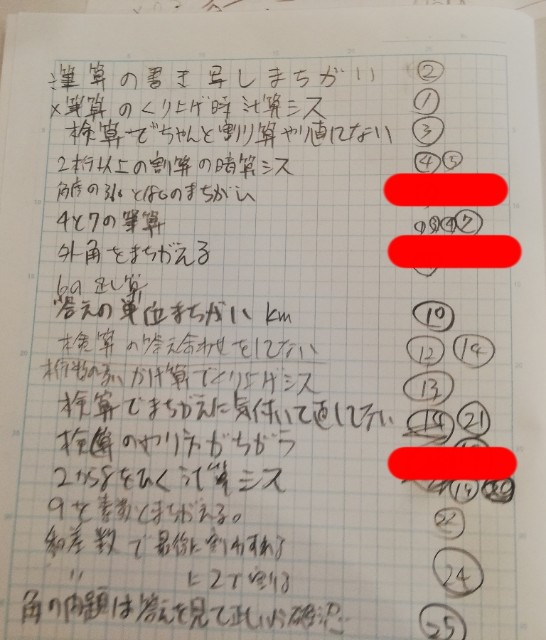 筆算の書き写しまちがい ②
×筆算のくり上げ時計算ミス ①
検算でちゃんと割り算やり直してない ③
2桁以上の割算の暗算ミス ④ ⑤
角度の まちがい
4と7の筆算 ⑦
外角をまちがえる
答えの単位まちがい km ⑩
検算の答え合わせをしてない ⑫ ⑭
かけ算でくり上げミス ⑬
検算でまちがえに気付いて直してない ⑲ ㉑
検算のやり方がちがう
2から8をひく計算ミス ⑲
9を素数とまちがえる。 ㉒
和差算で最後に割りわすれる
〃 に2で割る ㉔
角の問題は答えを見て正しいか確認 ㉕